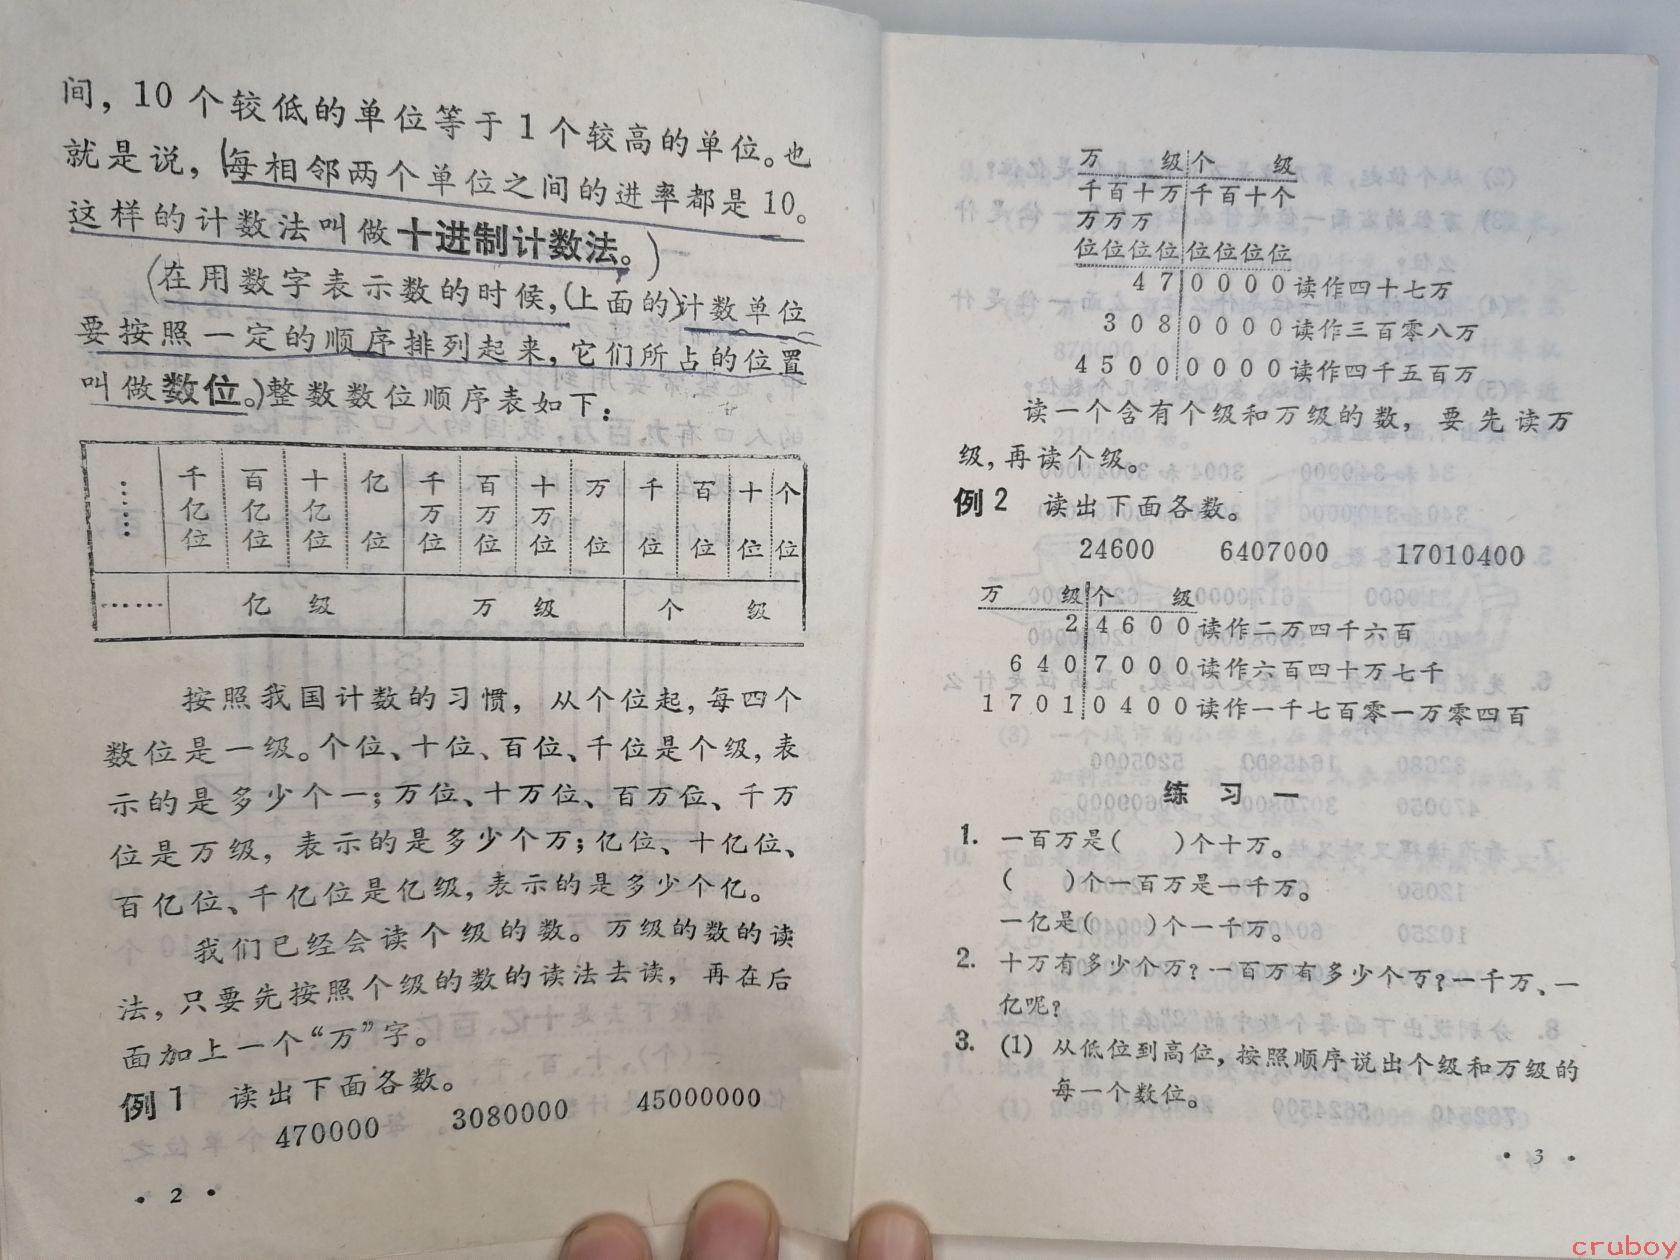 间，10个较低的单位等于1个较高的单位。也
就是说，(每相邻两个单位之间的进率都是10。
这样的计数法叫做十进制计数法。)
(在用数字表示数的时候，(上面的)计数单位
要按照一定的顺序排列起来，它们所占的位置
叫做数位。)整数数位顺序表如下：
…… 千亿位 百亿位 十亿位 亿位 千万位 百万位 十万位 万位 千位 百位 十位 个位
…… 亿级 万级 个级
按照我国计数的习惯，从个位起，每四个
数位是一级。个位、十位、百位、千位是个级，表
示的是多少个一；万位、十万位、百万位、千万
位是万级，表示的是多少个万；亿位、十亿位、
百亿位、千亿位是亿级，表示的是多少个亿。
我们已经会读个级的数。万级的数的读
法，只要先按照个级的数的读法去读，再在后
面加上一个“万”字。
例1 读出下面各数。
470000 3080000 45000000
· 2 ·
万 级 个 级
千百十万 千百十个
万万万
位位位位 位位位位
47 0000 读作四十七万
308 0000 读作三百零八万
4500 0000 读作四千五百万
读一个含有个级和万级的数，要先读万
级，再读个级。
例2 读出下面各数。
24600 6407000 17010400
万 级 个 级
2 4600 读作二万四千六百
640 7000 读作六百四十万七千
1701 0400 读作一千七百零一万零四百
练习一
1. 一百万是(  )个十万。
(  )个一百万是一千万。
一亿是(  )个一千万。
2. 十万有多少个万？一百万有多少个万？一千万、一
亿呢？
3. (1) 从低位到高位，按照顺序说出个级和万级的
每一个数位。
· 3 ·
cruboy